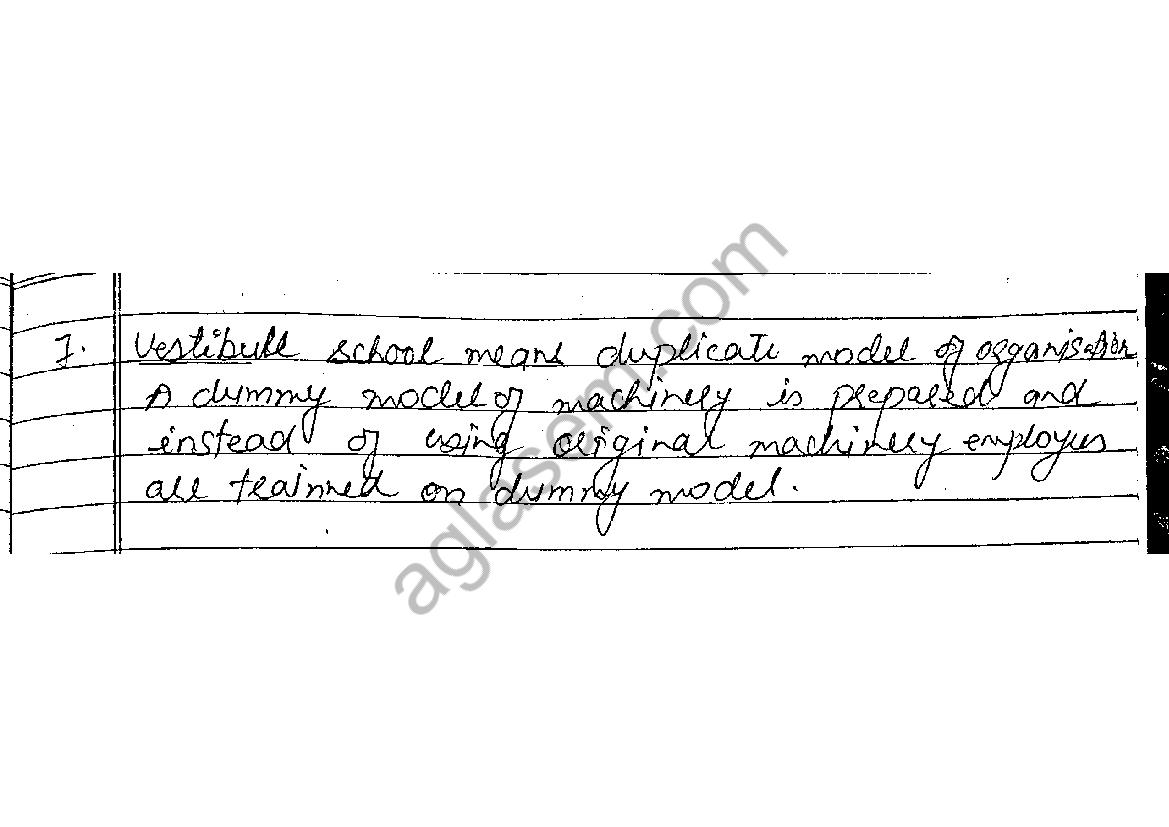 7. Vestibule school means duplicate model of organisation
A dummy model of machinery is prepared and
instead of using original machinery employees
are trainned on dummy model.
aglasem.com